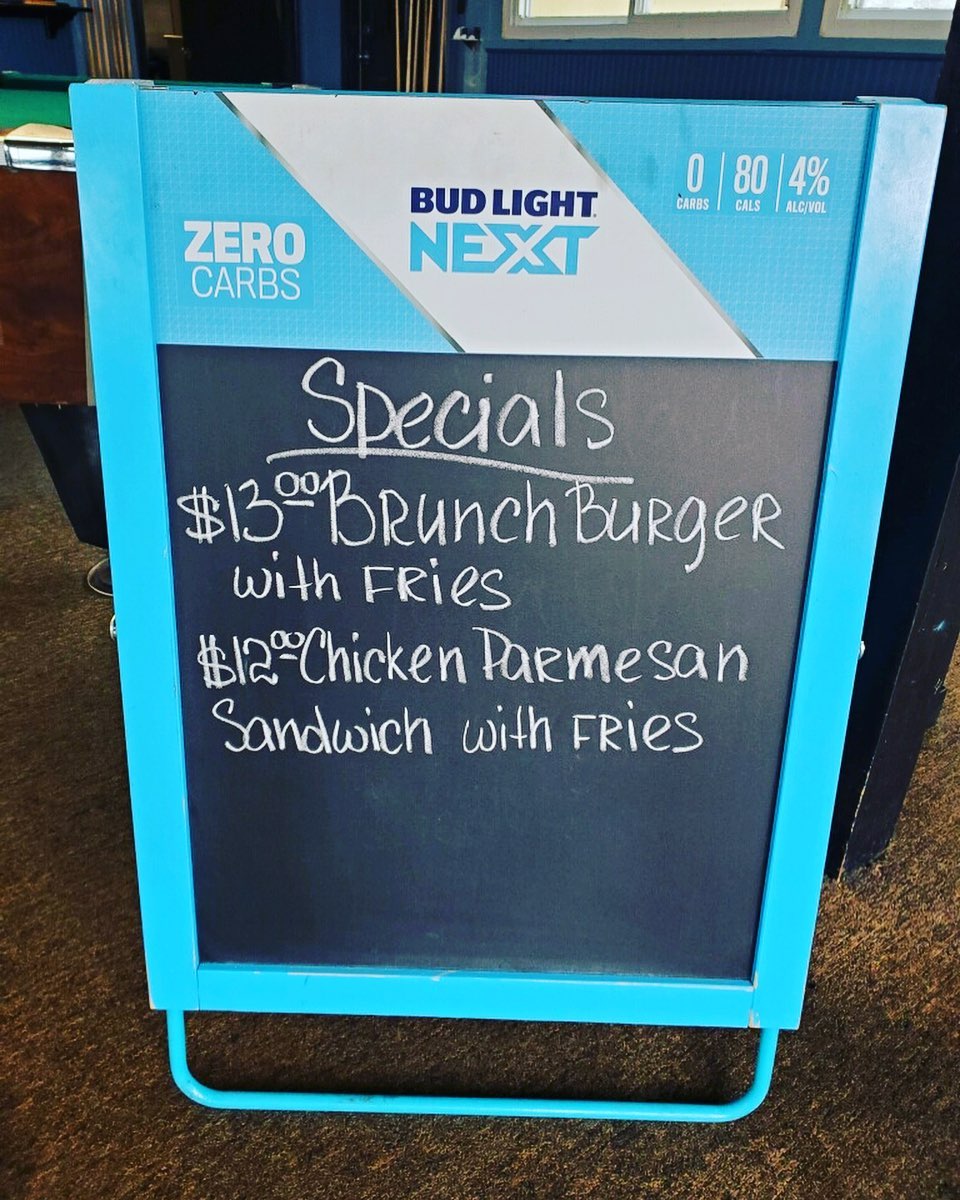 ZERO
CARBS
BUD LIGHT
NEXT
0 80 4%
CARBS CALS ALC/VOL
Specials
$13.00 Brunch Burger
with Fries
$12.00 Chicken Parmesan
Sandwich with Fries